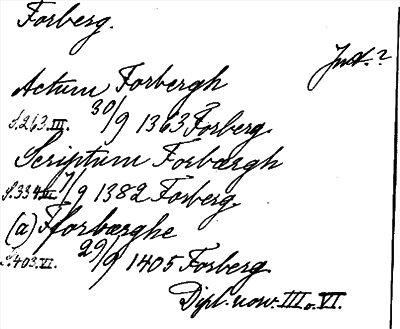 Forberg.
Jnd.?
Actum Forbergh
S.263.III. 30/9 1363 Forberg
Scriptum Forbærgh
S.334.VI. 7/9 1382 Forberg
(a) Fforbærghe
S.403.VI. 29/9 1405 Forberg
Dipl. norv. III o. VI.